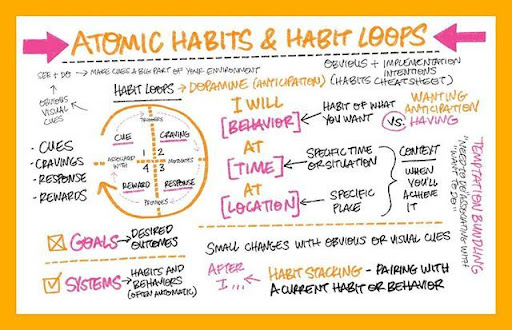 ATOMIC HABITS & HABIT LOOPS
SEE + DO → MAKE CUES A BIG PART OF YOUR ENVIRONMENT
OBVIOUS
VISUAL
CUES
HABIT LOOPS → DOPAMINE (ANTICIPATION)
OBVIOUS + IMPLEMENTATION
INTENTIONS
(HABITS CHEATSHEET)
- CUES
- CRAVINGS
- RESPONSE
- REWARDS
TRIGGERS
CUE
CRAVING
1 2
ASSOCIATED WITH
MOTIVATES
4 3
REWARD
RESPONSE
PROVIDES
I WILL
[BEHAVIOR]
HABIT OF WHAT
YOU WANT
AT
[TIME]
SPECIFIC TIME
OR SITUATION
AT
[LOCATION]
SPECIFIC
PLACE
CONTEXT
WHEN
YOU'LL
ACHIEVE
IT
WANTING
ANTICIPATION
VS.
HAVING
TEMPTATION BUNDLING
"NEED TO DO" ASSOCIATING WITH
"WANT TO DO"
GOALS → DESIRED
OUTCOMES
SYSTEMS → HABITS AND
BEHAVIORS
(OFTEN AUTOMATIC)
SMALL CHANGES WITH OBVIOUS OR VISUAL CUES
AFTER
I...
HABIT STACKING - PAIRING WITH
A CURRENT HABIT OR BEHAVIOR